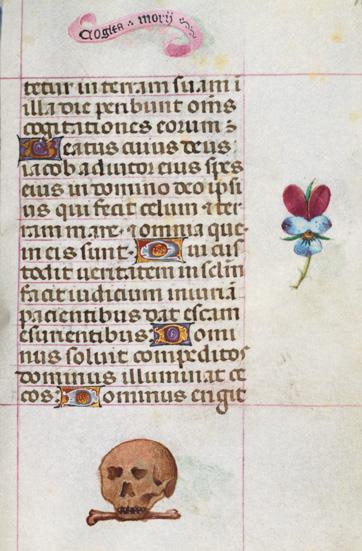 Cogita mori
tetur in terram suam i
illa die peribunt oms
cogitationes eorum
Beatus cuius deus
iacob adiutor eius spes
eius in domino deo ipsi
us qui fecit celum & ter
ram mare & omnia que
in eis sunt Qui cus
todit veritatem in seclm
facit iudicium iniuriā
pacientibus dat escam
esurientibus Domi
nus soluit compeditos
dominus illuminat ce
cos Dominus erigit